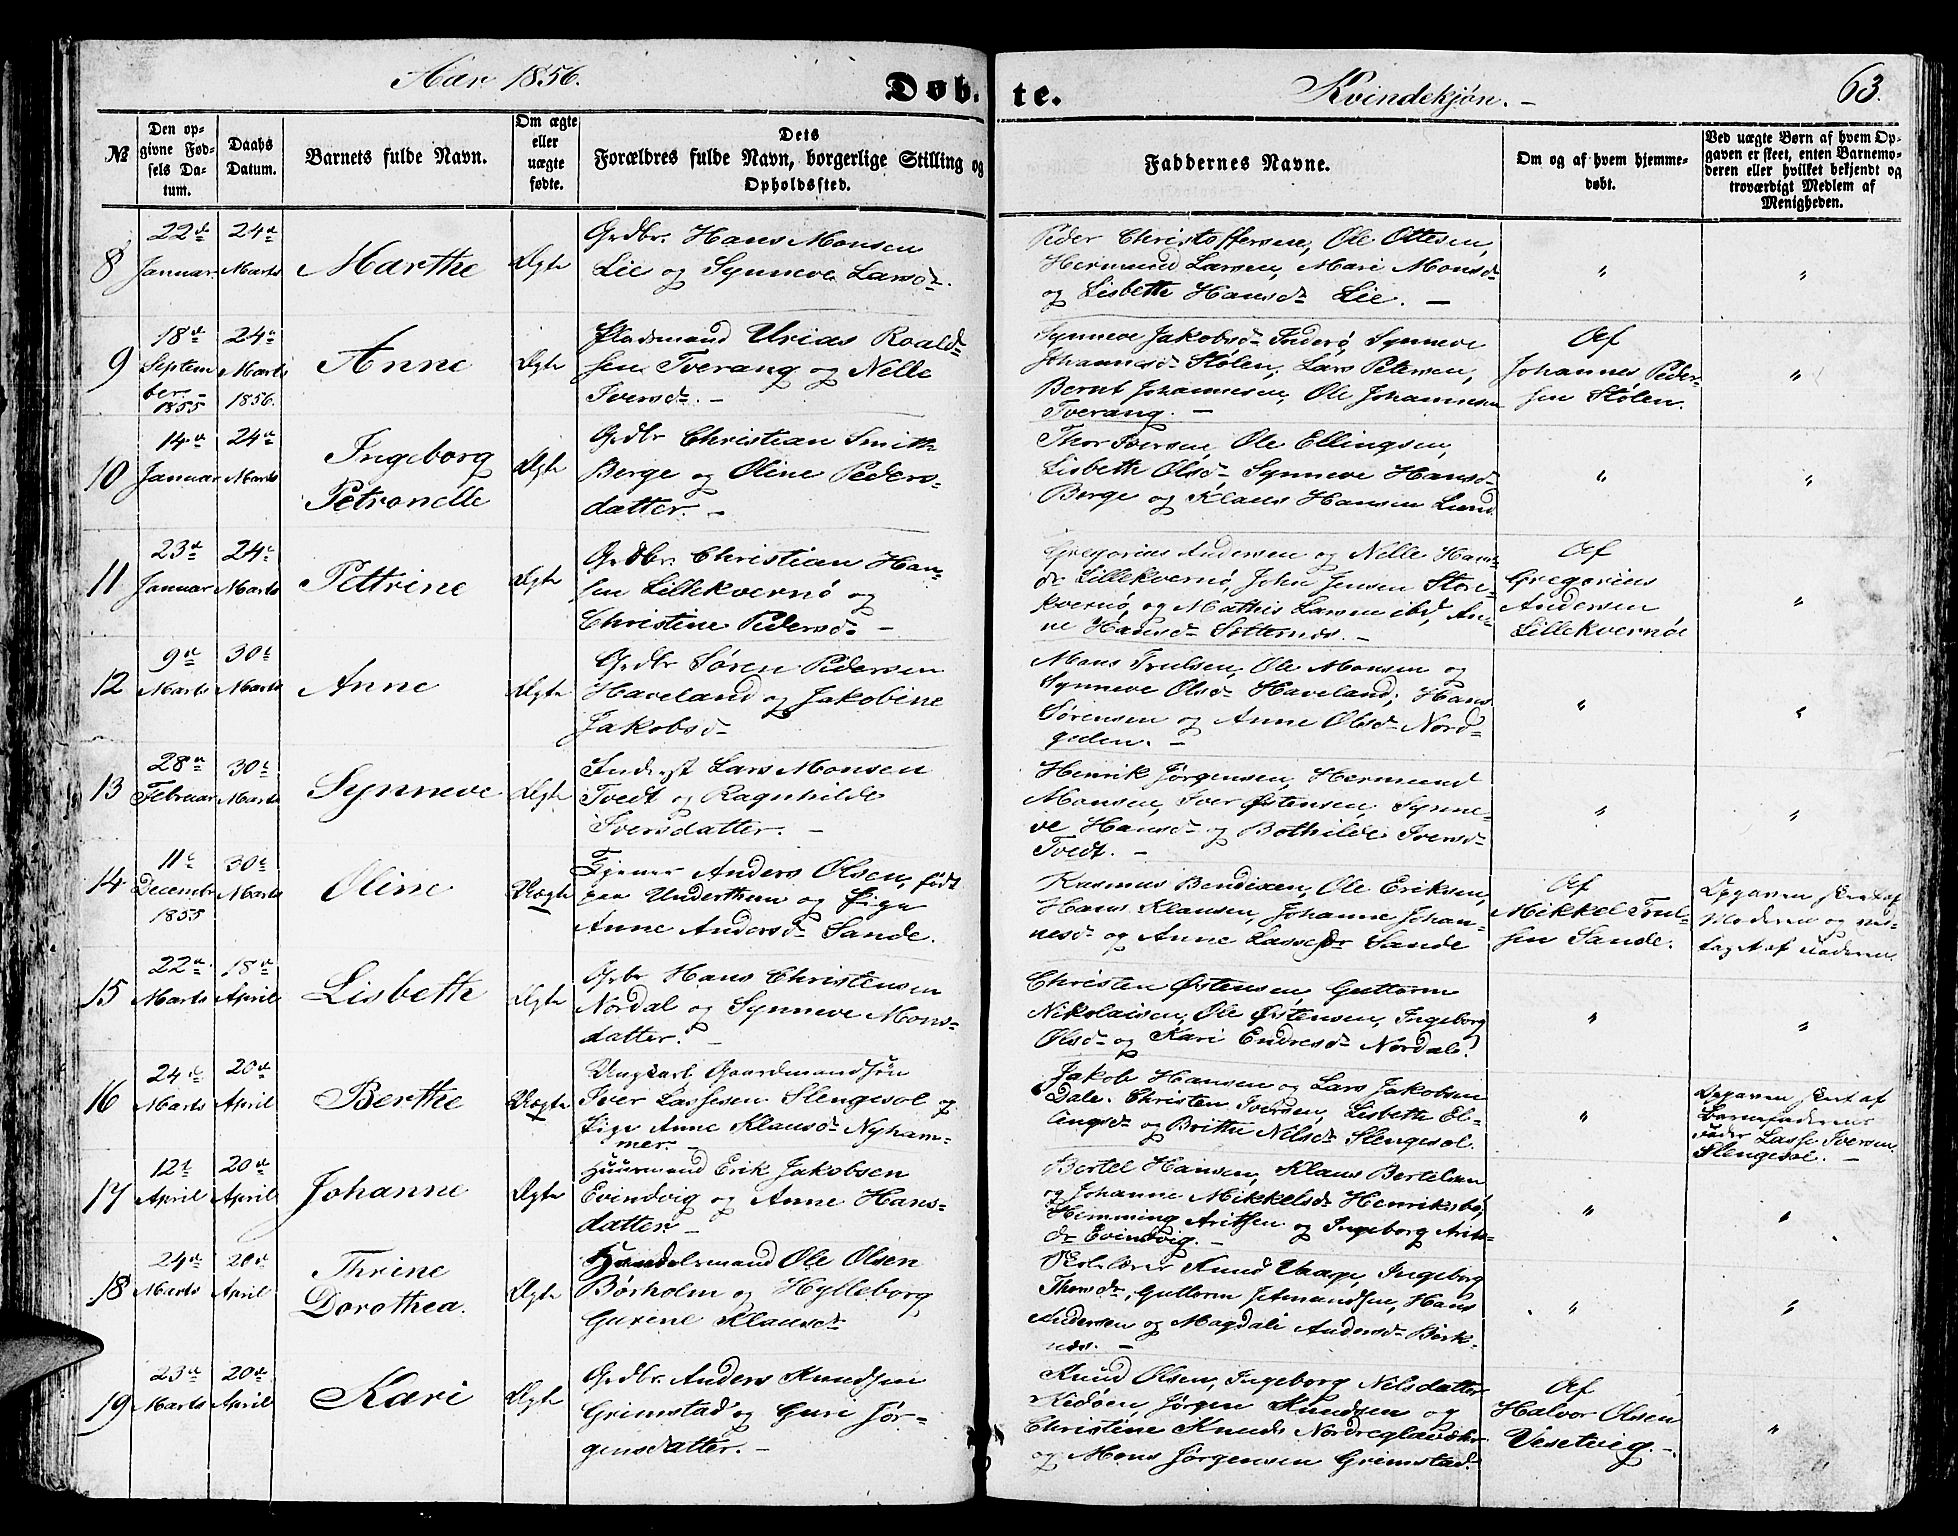 Aar 1856. Døb- te. Kvindekjøn. - 63.
№
Den op-
givne Fød-
sels Da-
tum.
Daabs
Datum.
Barnets fulde Navn.
Om ægte
eller
uægte
fødte.
Dets
Forældres fulde Navn, borgerlige Stilling og
Opholdssted.
Faddernes Navne.
Om og af hvem hjemme-
døbt.
Ved uægte Børn af hvem Op-
gaven er skeet, enten Barnemo-
deren eller hvilket bekjendt og
troværdigt Medlem af
Menigheden.
8
22de
Januar
24de
Marts
Marthe
Ægte
Grdbr. Hans Monsen
Lie og Synneve Larsdr.
Peder Christoffersen, Ole Ottesen,
Hermund Larsen, Mari Monsdr
og Lisbeth Hansdr Lie. -
"
"
9
18de
Septem
ber. -
1855
24de
Marts
1856.
Anne
Ægte
Pladsmand Urias Roald-
sen Tverang og Nelle
Iversdr. -
Synneve Jakobsdr Inderø, Synneve
Johannesdr Stølen, Lars Petersen,
Bernt Johannesen, Ole Johannesen
Tverang. -
Af
Johannes Peder-
sen Stølen.
"
10
14de
Januar
24de
Marts
Ingeborg
Petronelle
Ægte
Grdbr Christian Smith
Berge og Oline Peders-
datter. -
Thor Iversen, Ole Ellingsen,
Lisbeth Olsdr Synneve Hansdr
Berge og Klaus Hansen Lund
"
"
11
23de
Januar
24de
Marts
Pettrine
Ægte
Grdbr. Christian Han-
sen Lillekvernø og
Christine Pedersdr -
Gregorius Andersen og Nelle Hans-
dr Lillekvernø, John Jensen Store-
kvernø, og Mathis Larsen ibd, An-
ne Hansdr -
Af
Gregorius
Andersen
Lillekvernøe
"
12
9de
Marts
30te
Marts
Anne
Ægte
Grdbr Søren Pedersen
Haveland og Jakobine
Jakobsdr
Mons Trulsen, Ole Monsen og
Synneve Olsdr Haveland, Hans
Sørensen og Anne Olsdr Nord-
gulen. -
"
"
13
28de
Februar
30te
Marts
Synneve
Ægte
Inderst Lars Monsen
Tvedt og Ragnhilde
Iversdatter. -
Henrik Jørgensen, Hermund
Monsen, Iver Østensen, Synne-
ve Hansdr og Bothilde Iversdr
Tvedt. -
"
"
14
11te
Decembr
1855
30te
Marts
Oline
Uægte
Tjener Anders Olsen, født
paa Underthun og Pige
Anne Andersdr Sande.
Rasmus Bendixen, Ole Eriksen,
Hans Klausen, Johanne Johan-
nesdr og Anne Lassesdr Sande
Af
Mikkel Trul-
sen Sande.
Opgaven skeet af
Moderen og ved-
taget af Faderen
15
22de
Marts
18de
April
Lisbeth
Ægte
Grbr Hans Christensen
Nordal og Synneve Mons-
datter. -
Christen Østensen, Guttorm
Nikolaisen, Ole Østensen, Ingeborg
Olsdr og Kari Endresdr Nordal.
"
"
16
24de
Marts
20de
April
Berthe
Uægte
Ungkarl Gaardmandssøn
Iver Lassesen Slengesol og
Pige Anne Klausdr Nyham-
mer. -
Jakob Hansen og Lars Jakobsen
Dale. Christen Iversen, Lisbeth El-
lingsdr og Brithe Nilsdr Slengesol.
"
Opgaven skeet af
Barnefaderens
Fader Lasse Iversen
Slengesol. -
17
12te
April
20de
April
Johanne
Ægte
Huusmand Erik Jakobsen
Evindvig og Anne Hans-
datter. -
Bertel Hansen, Klaus Bertelsen
og Johanne Mikkelsdr Henriksbø,
Flemming Aritsen og Ingeborg Arits-
dr Evindvig. -
"
"
18
24de
Marts
20de
April
Thrine
Dorothea.
Ægte
Handelsmand Ole Olsen
Børholm og Hylleborg
Gurine Klausdr
Knud Vaage, Ingeborg
Thorsdr, Guttorm Hans
Andersen og Magdali Andersdr Birk-
nes. -
"
"
19
23de
Marts
20de
April
Kari
Ægte
Grdbr. Anders Knudsen
Grimstad og Guri Jør-
gensdatter. -
Knud Olsen, Ingeborg Nilsdatter
Jørgen Knudsen og
Christine Knudsdr
og Mons Jørgensen Grimstad.
Af
Halvor Olsen
Vesetvig. -
"